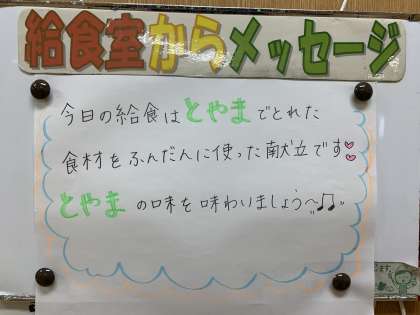 給食室からメッセージ
今日の給食はとやまでとれた
食材をふんだんに使った献立です
とやまの味を味わいましょう〜♫